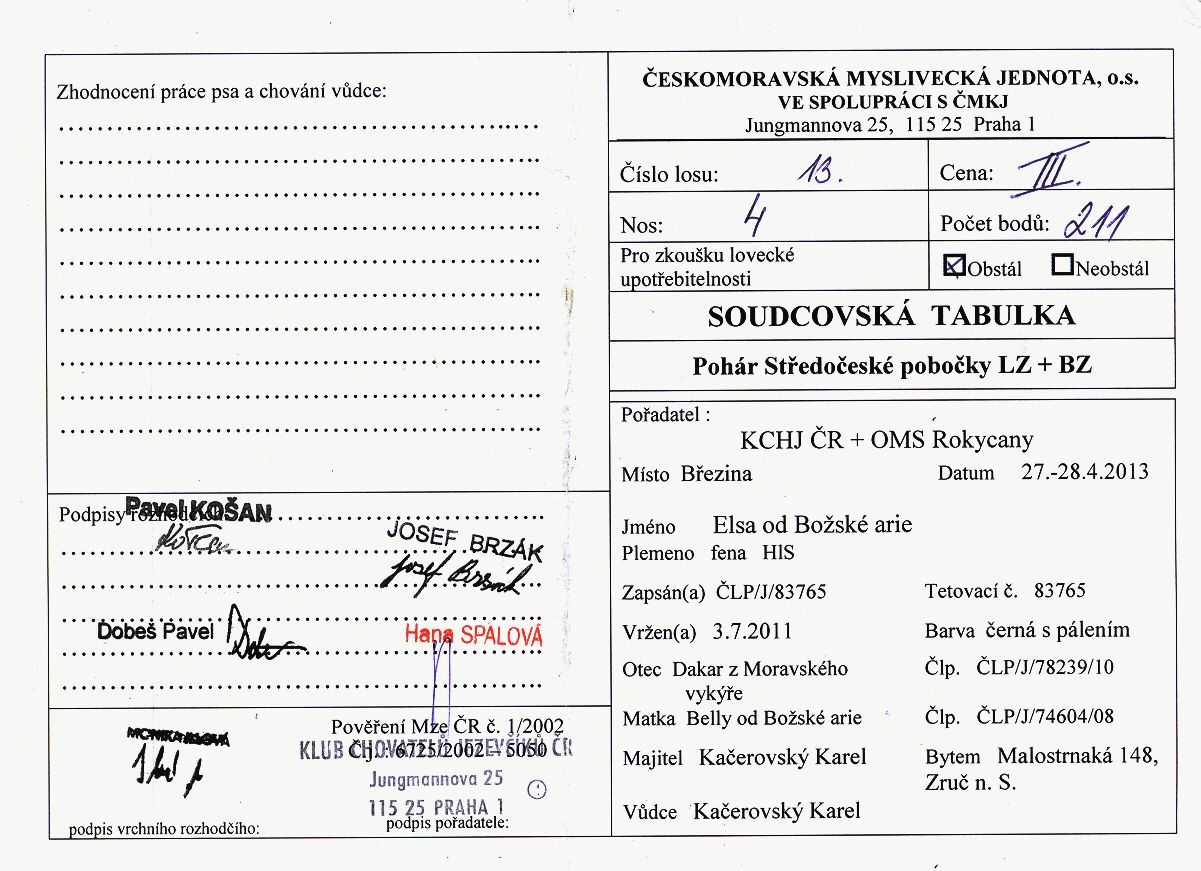 Zhodnocení práce psa a chování vůdce:
Podpisy rozhodčích
Pavel KOŠAN
JOSEF BRZÁK
Josef Brzák
Dobeš Pavel
Hana SPALOVÁ
Pověření Mze ČR č. 1/2002
Č.j.: 6725/2002 – 5050
KLUB CHOVATELŮ JEZEVČÍKŮ ČR
Jungmannova 25
115 25 PRAHA 1
podpis vrchního rozhodčího:
podpis pořadatele:
ČESKOMORAVSKÁ MYSLIVECKÁ JEDNOTA, o.s.
VE SPOLUPRÁCI S ČMKJ
Jungmannova 25, 115 25 Praha 1
Číslo losu: 13.
Cena: III.
Nos: 4
Počet bodů: 211
Pro zkoušku lovecké
upotřebitelnosti
Obstál Neobstál
SOUDCOVSKÁ TABULKA
Pohár Středočeské pobočky LZ + BZ
Pořadatel :
KCHJ ČR + OMS Rokycany
Místo Březina Datum 27.-28.4.2013
Jméno Elsa od Božské arie
Plemeno fena HlS
Zapsán(a) ČLP/J/83765 Tetovací č. 83765
Vržen(a) 3.7.2011 Barva černá s pálením
Otec Dakar z Moravského Člp. ČLP/J/78239/10
vykýře
Matka Belly od Božské arie Člp. ČLP/J/74604/08
Majitel Kačerovský Karel Bytem Malostrnaká 148,
Zruč n. S.
Vůdce Kačerovský Karel